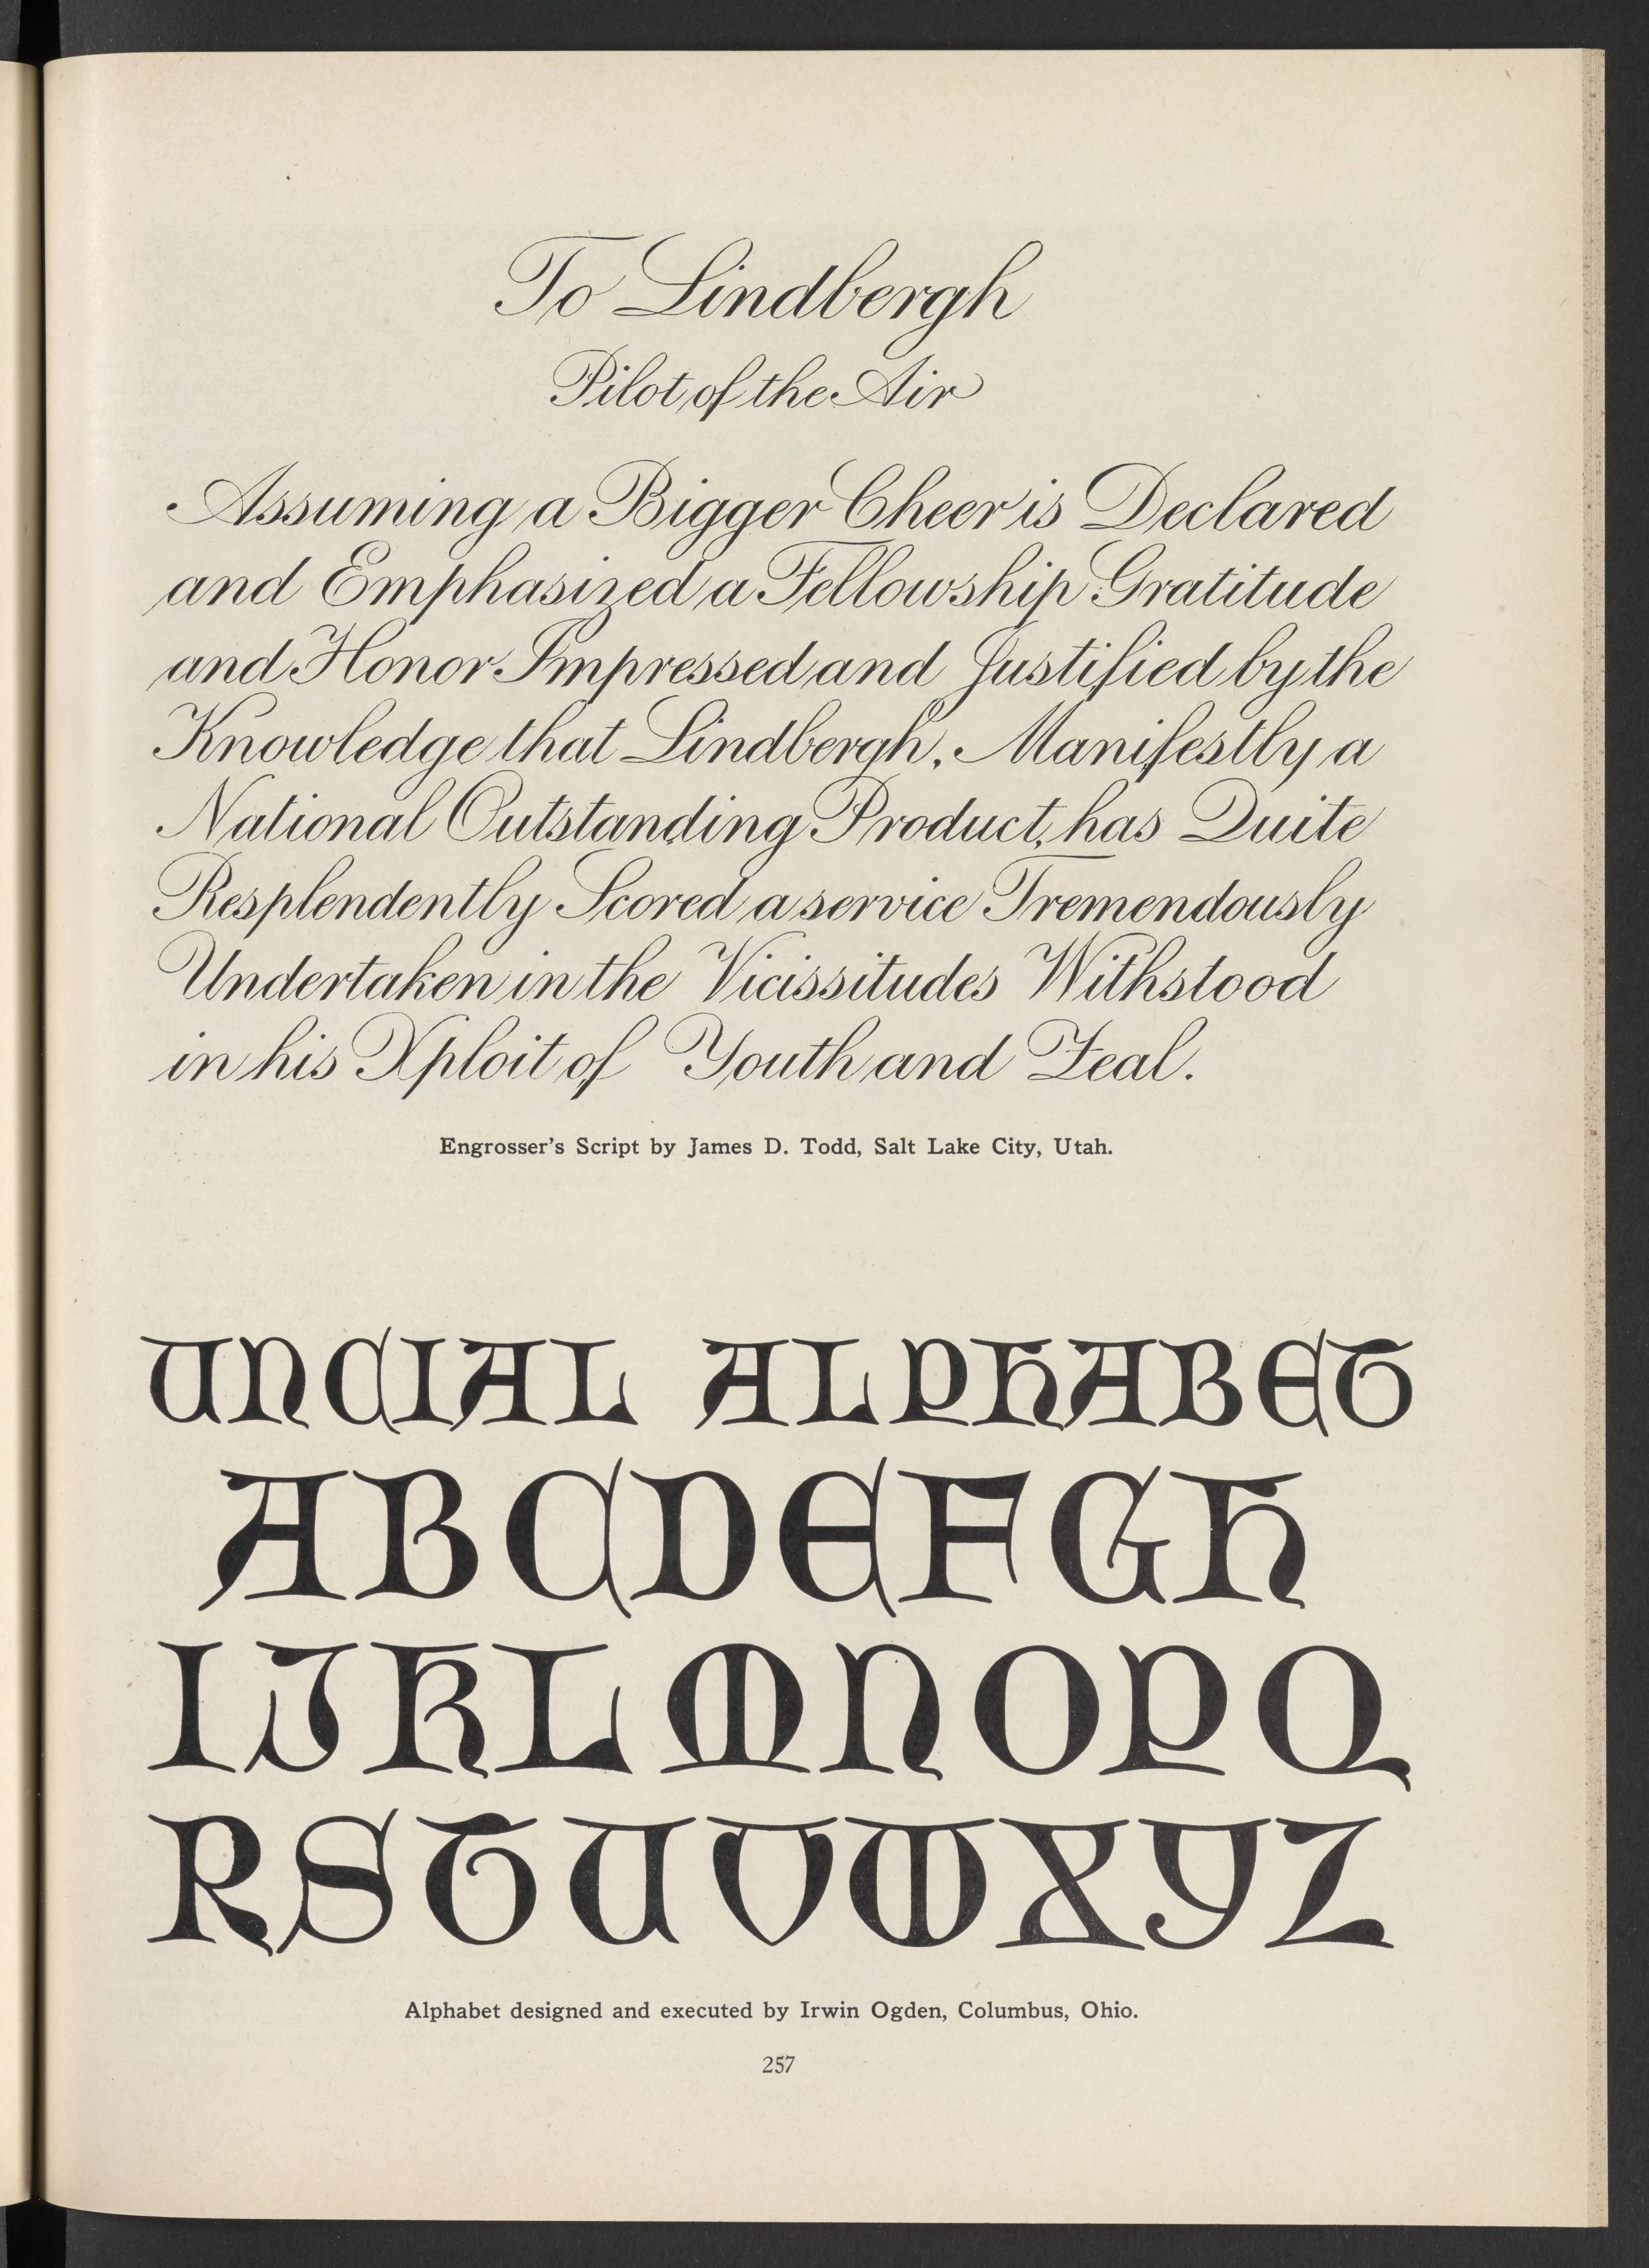 To Lindbergh
Pilot of the Air
Assuming a Bigger Cheer is Declared
and Emphasized a Fellowship Gratitude
and Honor Impressed and Justified by the
Knowledge that Lindbergh, Manifestly a
National Outstanding Product, has Quite
Resplendently Scored a service Tremendously
Undertaken in the Vicissitudes Withstood
in his Xploit of Youth and Zeal.
Engrosser's Script by James D. Todd, Salt Lake City, Utah.
UNCIAL ALPHABET
ABCDEFGH
IJKLMNOPQ
RSTUVWXYZ
Alphabet designed and executed by Irwin Ogden, Columbus, Ohio.
257